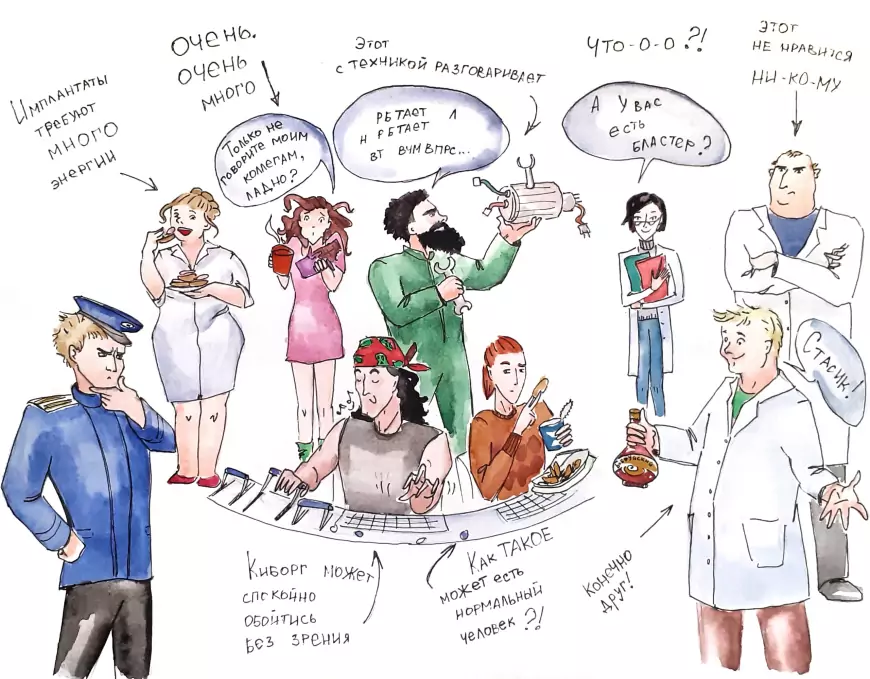 Имплантаты
требуют
много
энергии
Очень.
очень
много
Только не
говорите моим
коллегам,
ладно?
Этот
с техникой разговаривает
РБТАЕТ Л
Н РБТАЕТ
ВТ ВЧМ ВПРС...
Что-о-о?!
А у вас
есть
бластер?
Этот
не нравится
ни-ко-му
Стасик!
Киборг может
спокойно
обойтись
без зрения
Как ТАКОЕ
может есть
нормальный
человек?!
конечно
друг!